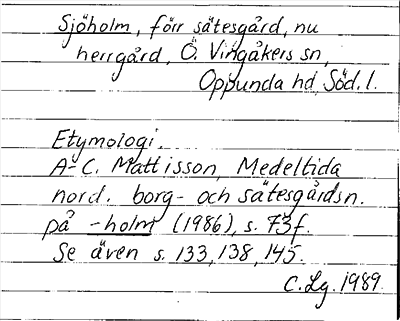 Sjöholm, förr sätesgård, nu
herrgård, Ö. Vingåkers sn,
Oppunda hd, Söd. l.
Etymologi.
A-C. Mattisson, Medeltida
nord. borg- och sätesgårdsn.
på -holm (1986), s. 73f.
Se även s. 133, 138, 145.
C. Lg. 1989.